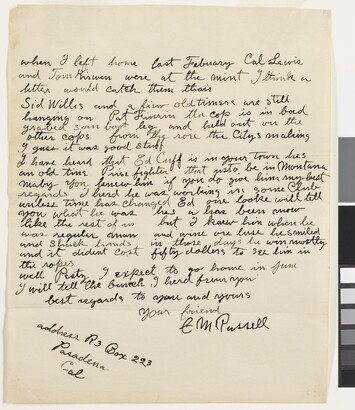 when I left home last February Cal Lewis
and Tom Kirwen were at the mint I think a
letter would catch them thair
Sid Willis and a fiew old timers are still
hanging on Pat the cop is in bad
grabed som boot leg and held out on the
other cops from the rose the Citys making
I guss it was good stuff
I have heard that Ed Cuff is in your town hes
an old time Prise fighter that usto be in Montana
maby you know him if you do give him my best
regards I hurd he was working in some Club
unless time has changed Ed one looke will tell
you what he was hes a has been now
like the rest of us but I knew him when he
was regular man and wine ore luse he smiled
and Shuck hands in those days he won mostly
and it dident cost fifty dollars to see him in
the ropes
well Pisty I expect to go home in June
I will tell the bunch I herd from you
best regards to you and yours
Your friend
C M Russell
address R3 Box 223
Pasadena
Cal